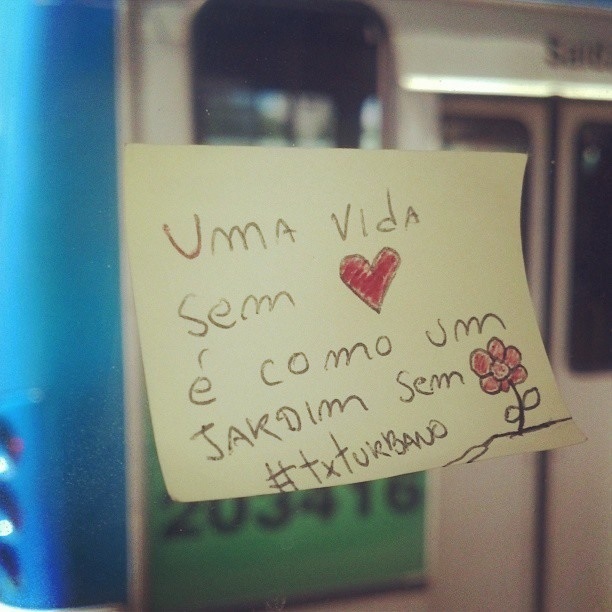 Santa
UMA VIdA
Sem
é como um
JARDIM Sem
#txTURBANO
203416